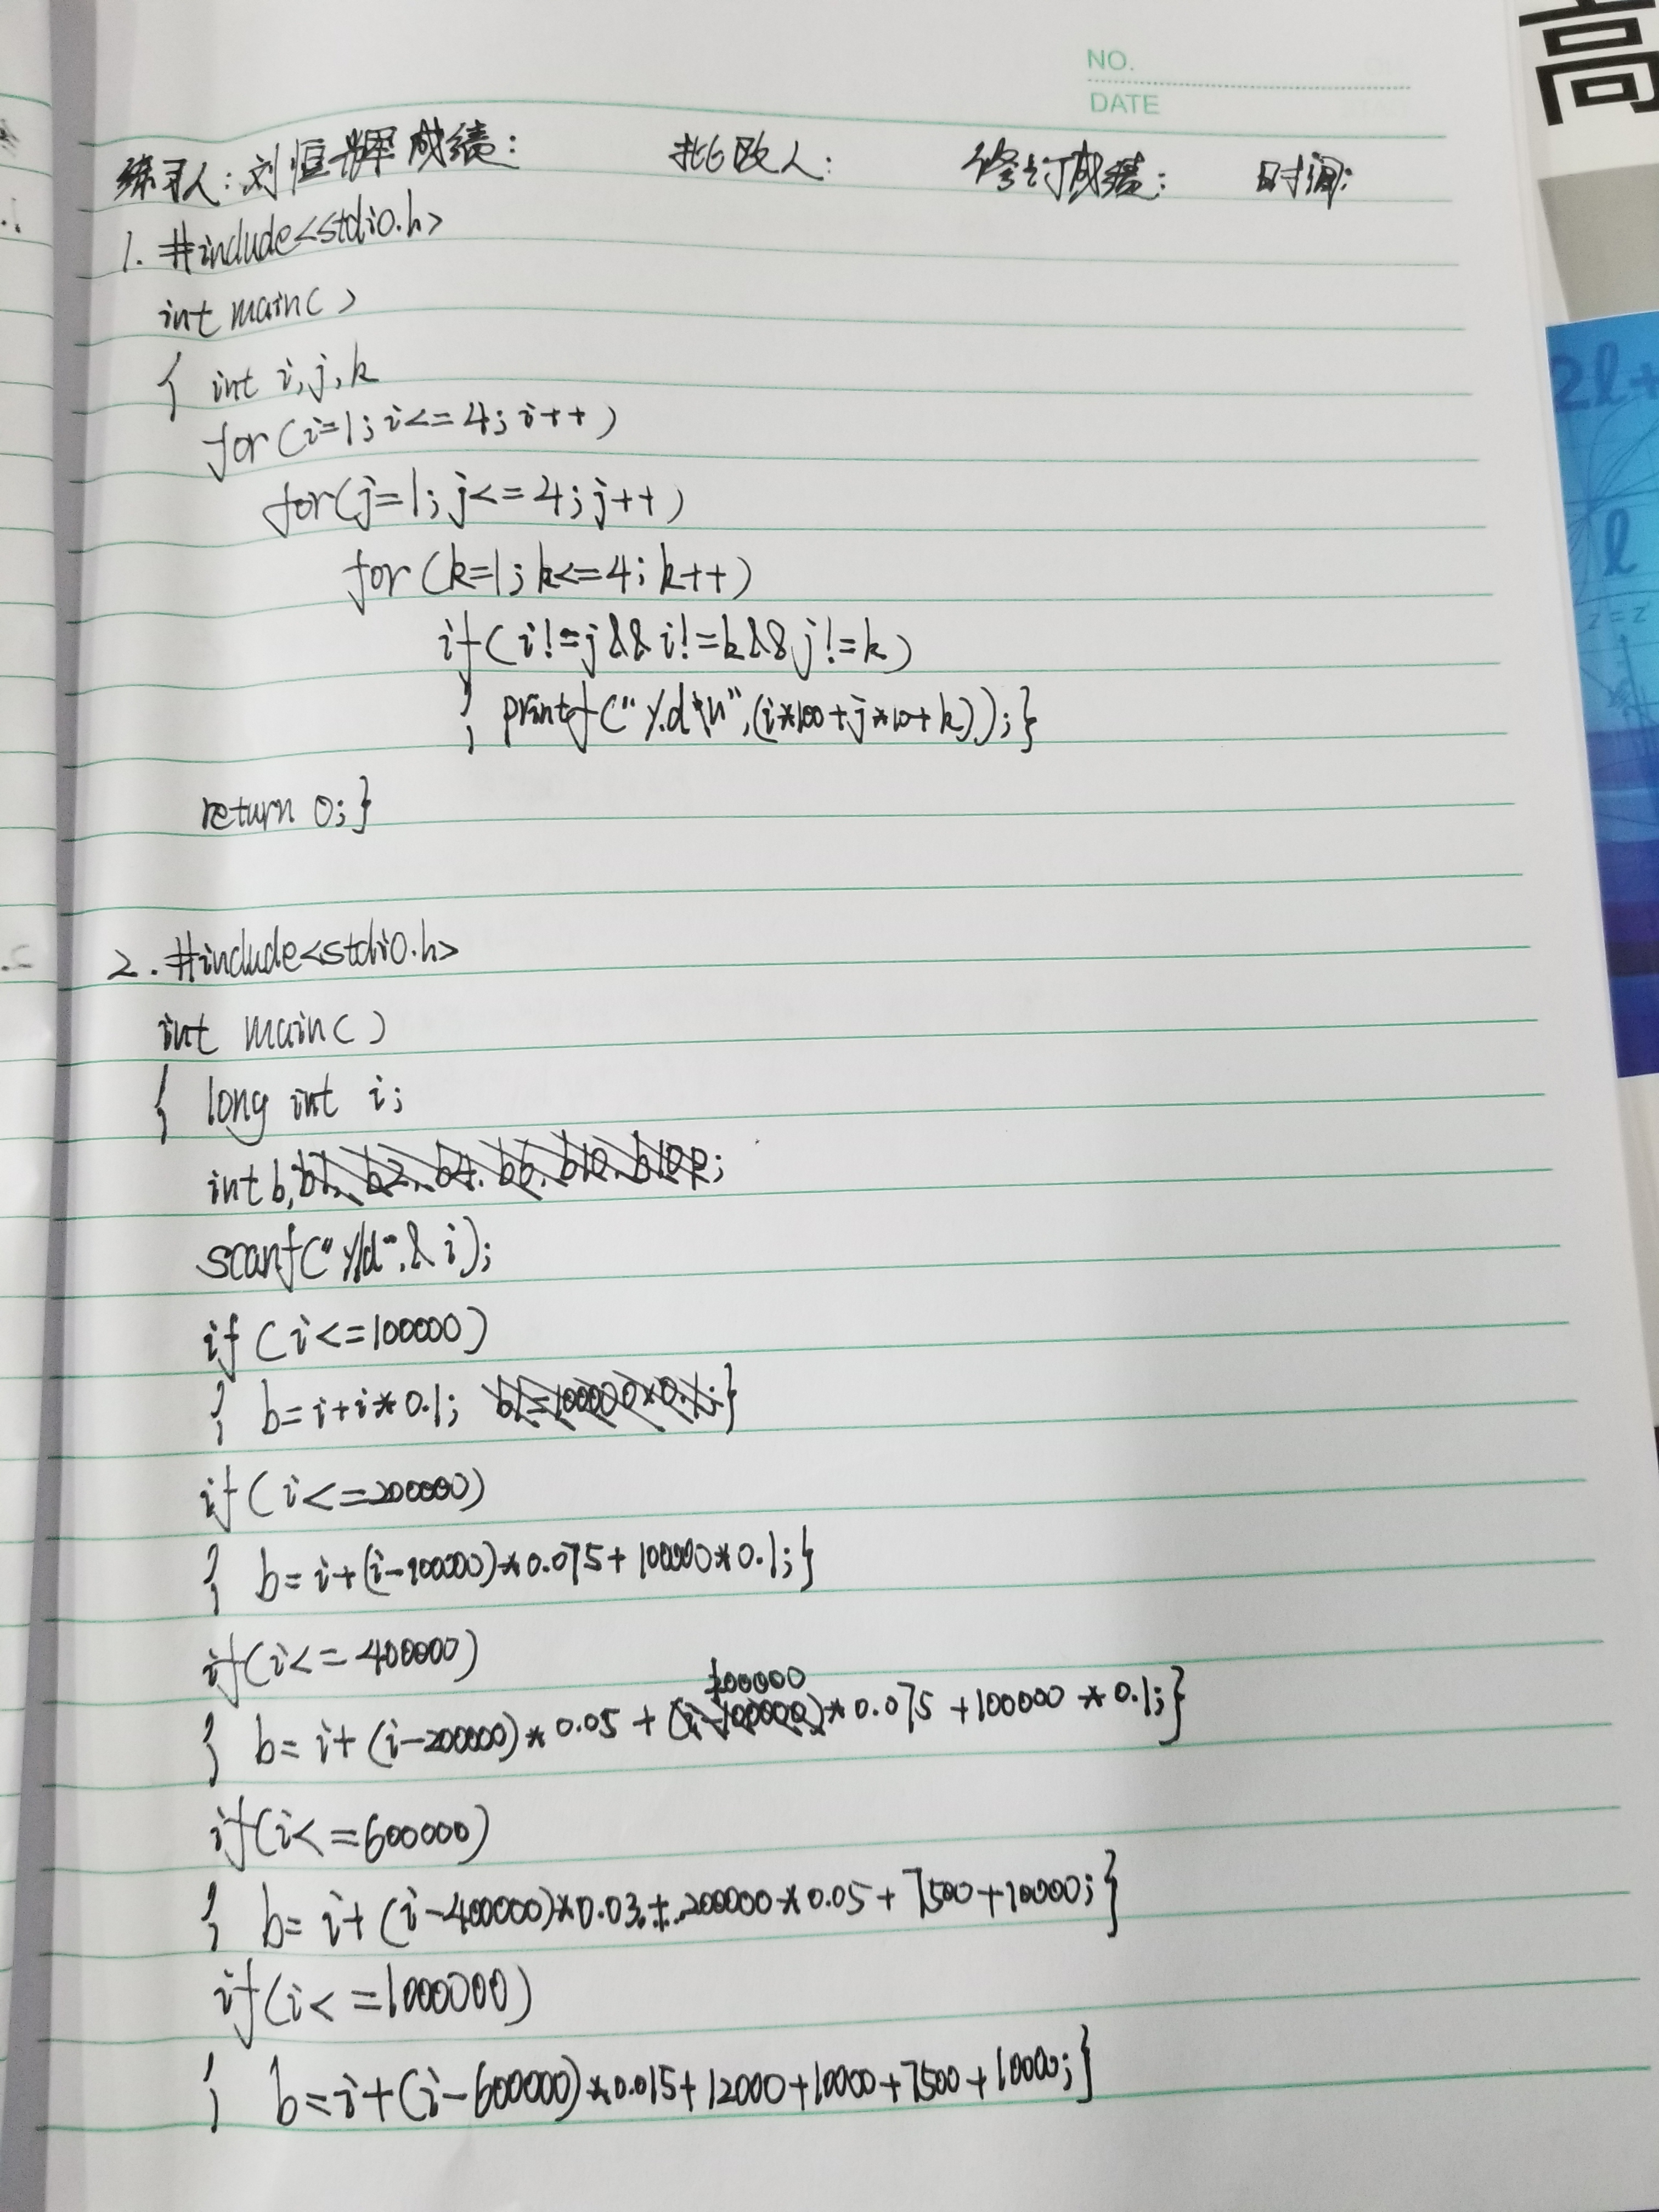 NO.
DATE
练习人:刘恒辉 成绩: 批改人: 修订成绩: 时间:
1. #include<stdio.h>
int main( )
{ int i,j,k
for(i=1;i<=4;i++)
for(j=1;j<=4;j++)
for(k=1;k<=4;k++)
if(i!=j&&i!=k&&j!=k)
{ printf("%d\n",(i*100+j*10+k));}
return 0;}
2. #include<stdio.h>
int main( )
{ long int i;
int b,b1,b2,b4,b6,b10,b10p;
scanf("%ld",&i);
if(i<=100000)
{ b=i+i*0.1; b1=100000*0.1;}
if(i<=200000)
{ b=i+(i-100000)*0.075+100000*0.1;}
if(i<=400000)
100000
{ b=i+(i-200000)*0.05+(i-100000)*0.075+100000*0.1;}
if(i<=600000)
{ b=i+(i-400000)*0.03+200000*0.05+7500+10000;}
if(i<=1000000)
{ b=i+(i-600000)*0.015+12000+10000+7500+10000;}
高
2l+
l
z=z